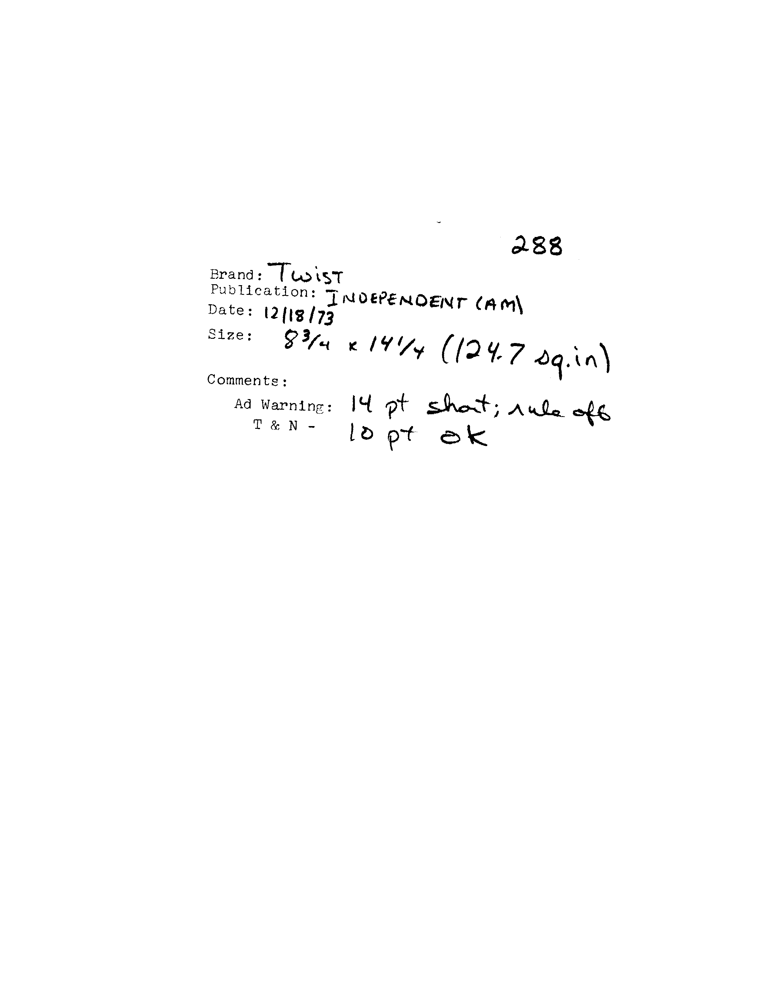 288
Brand: Twist
Publication: INDEPENDENT (AM)
Date: 12/18/73
Size: 8 3/4 x 14 1/4 (124.7 sq.in)
Comments:
Ad Warning: 14 pt short; rule off
T & N - 10 pt ok